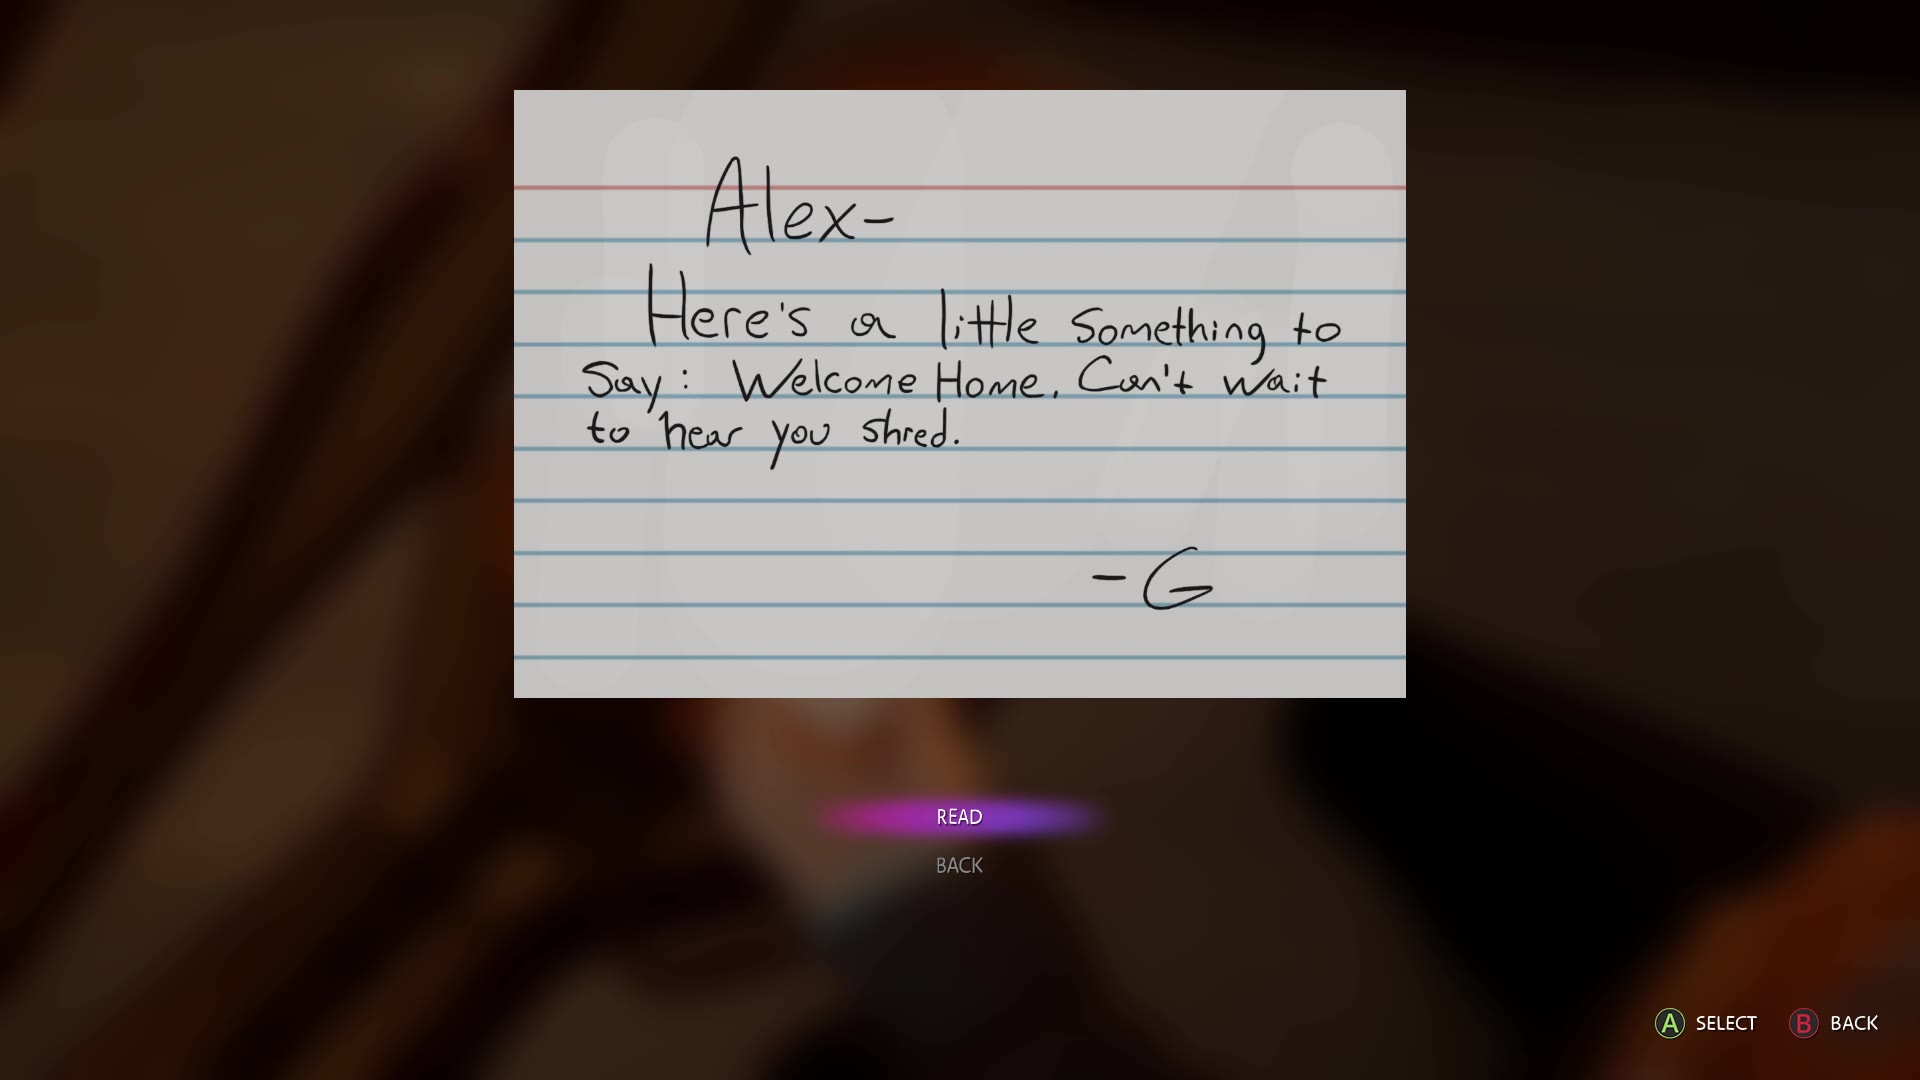 Alex-
Here's a little Something to
Say: Welcome Home. Can't wait
to hear you shred.
-G
READ
BACK
A SELECT B BACK